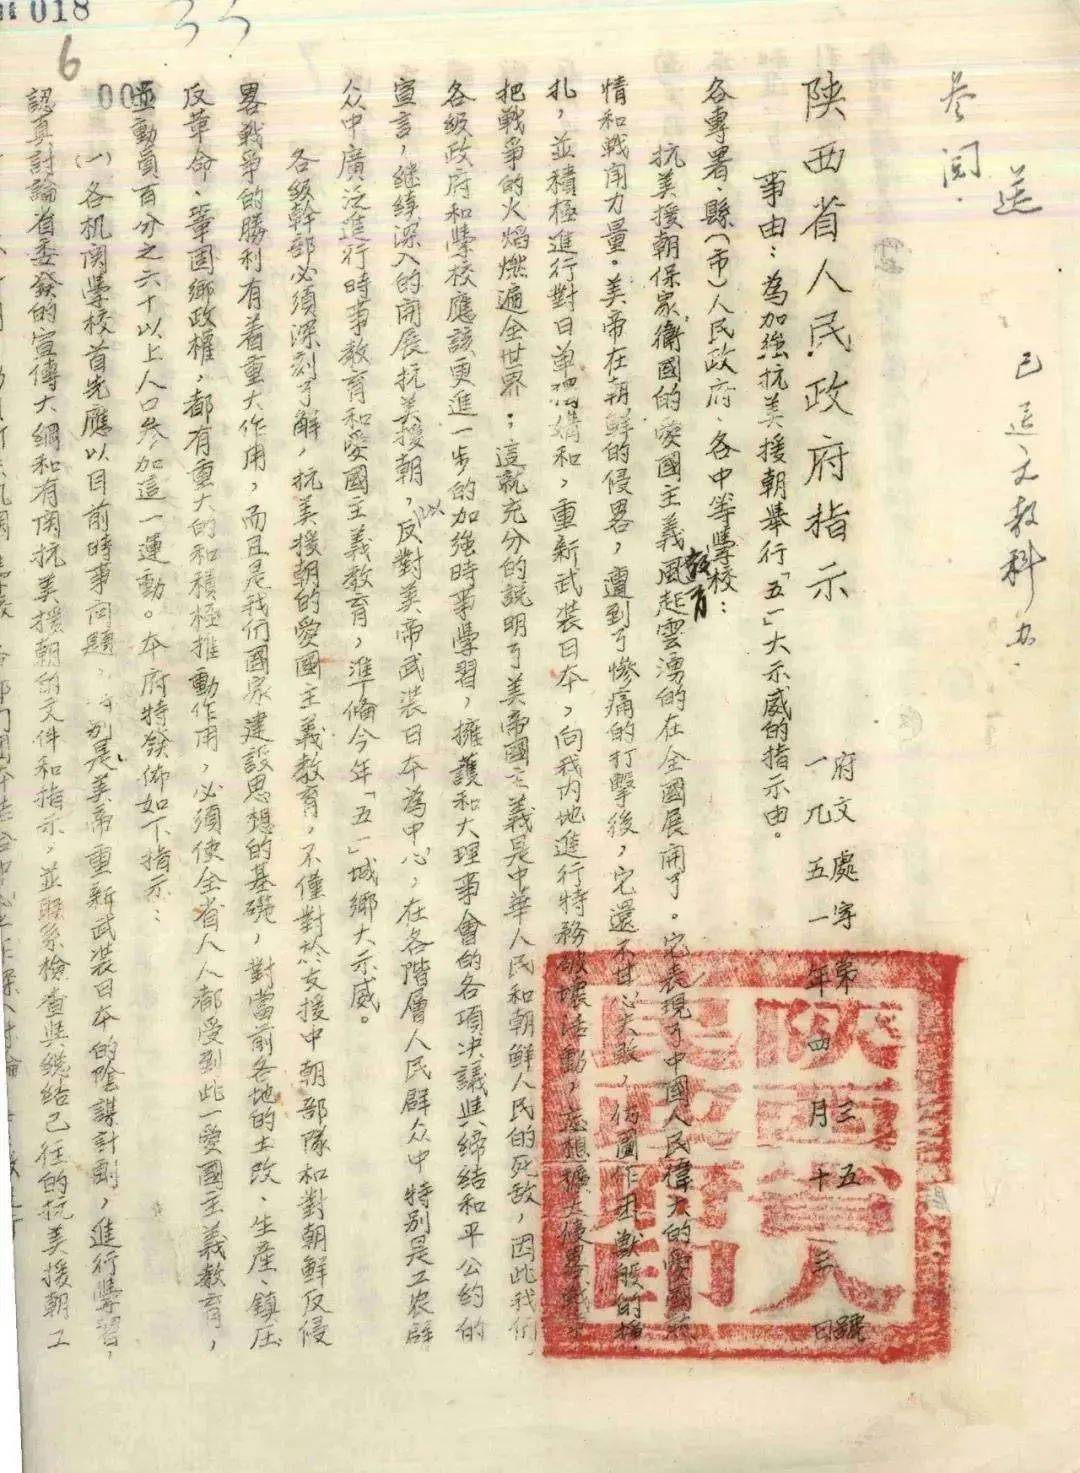 018
6
送
参閱.
已送文教科办.
陕西省人民政府指示
府文處字第三五號
一九五一年四月十三日
事由：為加強抗美援朝舉行「五一」大示威的指示由。
各專署.縣(市)人民政府.各中等學校：
抗美援朝保家衛國的愛國主義教育風起雲湧的在全國展開了。它表現了中國人民偉大的愛國熱
情和戰鬥力量。美帝在朝鮮的侵畧，遭到了慘痛的打擊後，它還不甘心失敗，仍圖作困獸般的掙
扎，並積極進行對日单獨媾和，重新武装日本，向我内地進行特務破壞活動，妄想擴大侵畧戰爭
把戰爭的火焰燃遍全世界；這就充分的說明了美帝國主義是中華人民和朝鮮人民的死敌，因此我们
各級政府和學校應該更進一步的加強時事學習，擁護和大理事會的各項决議與缔結和平公約的
宣言，继续深入的開展抗美援朝，以反對美帝武装日本為中心，在各階層人民群众中特别是工农群
众中廣泛進行時事教育和愛國主義教育，準備今年「五一」城鄉大示威。
各級幹部必須深刻了解，抗美援朝的愛國主義教育，不僅對於支援中朝部隊和對朝鮮反侵
畧戰爭的勝利有着重大作用，而且是我们國家建設思想的基礎，對當前各地的土改、生產、鎮压
反革命、鞏固鄉政權，都有重大的和積極推動作用，必須使全省人人都受到此一愛國主義教育，
並動員百分之六十以上人口参加這一運動。本府特發佈如下指示：
(一)各机関學校首先應以目前時事问題，特别是美帝重新武装日本的陰謀計劃，進行學習，
認真討論省委發的宣傳大綱和有関抗美援朝的文件和指示，並联系檢查與總结已往的抗美援朝工
陕西省人民政府印